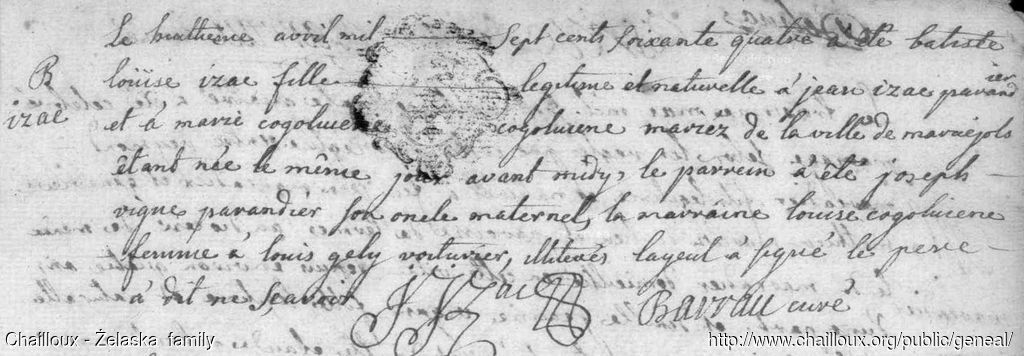 Le huitieme avril mil sept cents soixante quatre a été batisée
B
izac
loüise izac fille legitime et naturelle à jean izac parandier
et à marie cogoluene cogoluene mariez de la ville de maruejols
êtant née le même jour avant midy, le parrein à été joseph
vigne parandier son oncle maternel, la marraine louise cogoluene
femme à louis gely voiturier, illiterés layeul à signé le pere
à dit ne sçavoir J Izac Barrau curé
Chailloux - Żelaska family
http://www.chailloux.org/public/geneal/